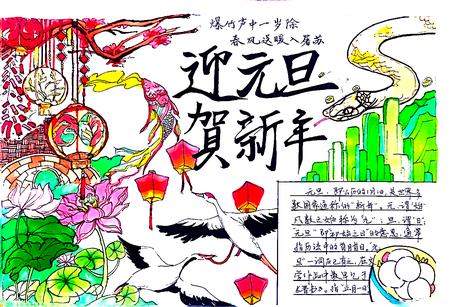 爆竹声中一岁除
春风送暖入屠苏
迎元旦
贺新年
元旦,即公历的1月1日,是世界
数国家通称的“新年”。元,谓“始
凡数之始称为“元”;旦,谓“日
元旦”即“初始之日”的意思。
指历法中的首月首日。
一词
指“正月一日